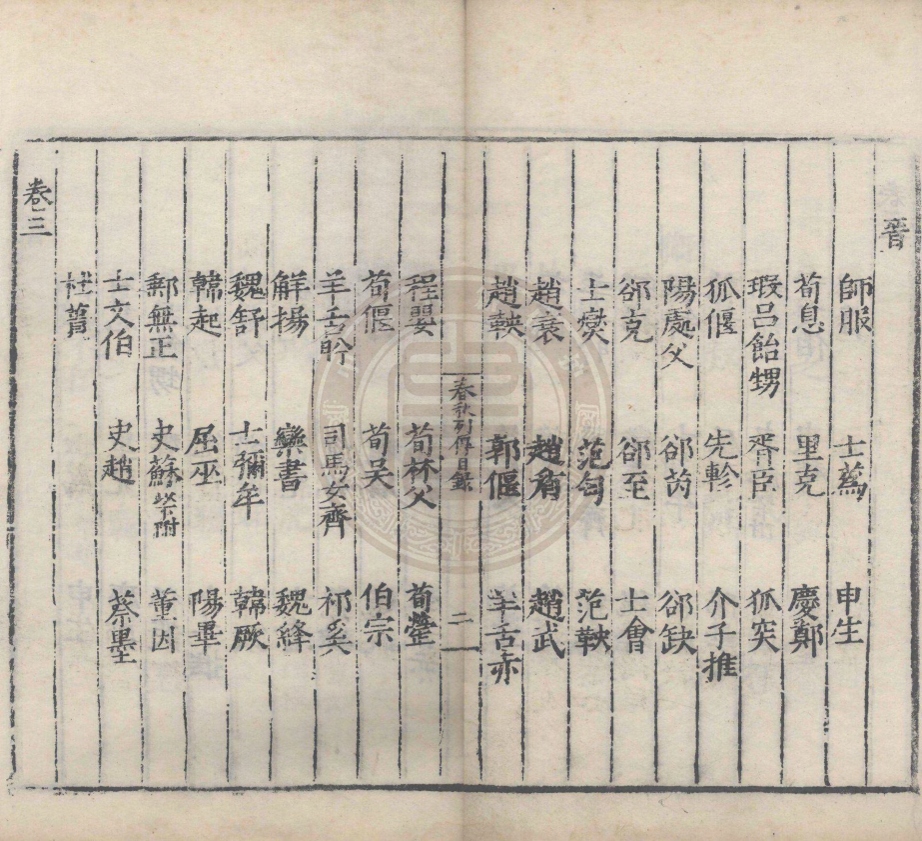 晉
師服 士蔿 申生
荀息 里克 慶鄭
瑕呂飴甥 胥臣 狐突
狐偃 先軫 介子推
陽處父 郤芮 郤缺
郤克 郤至 士會
士燮 范匄 范鞅
趙衰 趙盾 趙武
趙鞅 郭偃 羊舌赤
春秋列傳目錄 二
程嬰 荀林父 荀罃
荀偃 荀吳 伯宗
羊舌肸 司馬女齊 祁奚
解揚 欒書 魏絳
魏舒 士彌牟 韓厥
韓起 屈巫 陽畢
郵無正 史蘇 董因
士文伯 史趙 蔡墨
杜蕢
卷三